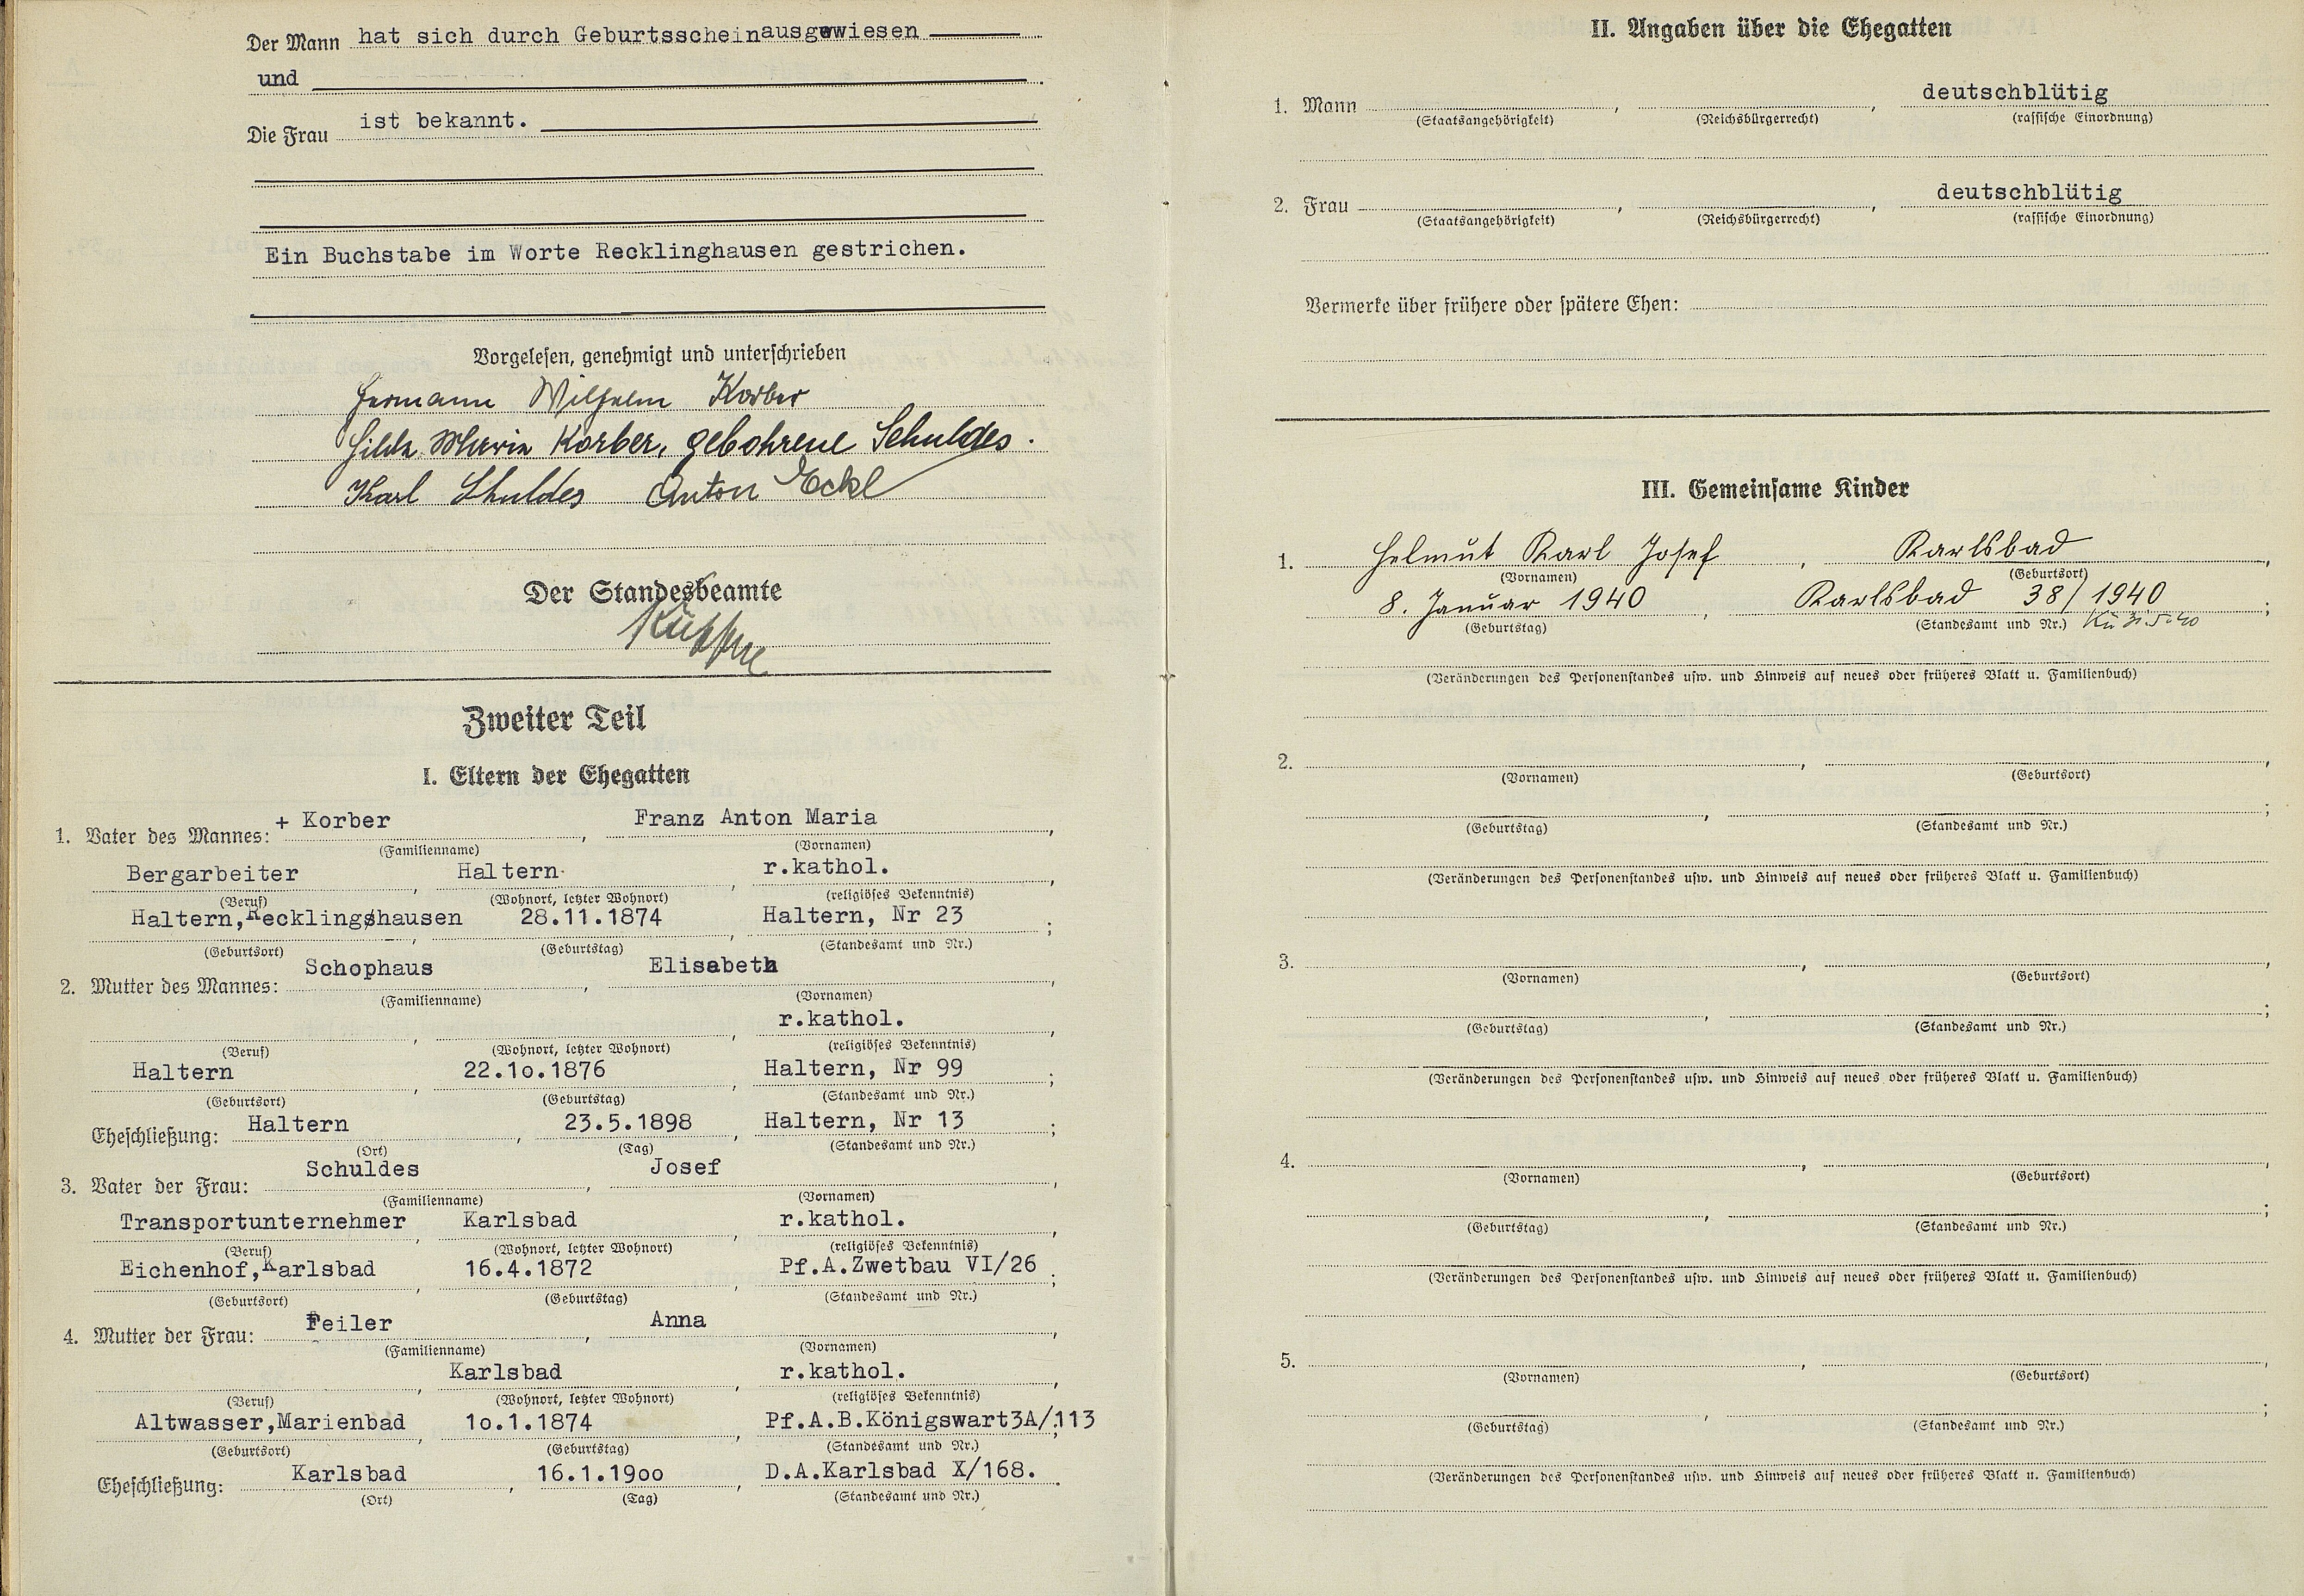 Der Mann hat sich durch Geburtsschein ausgewiesen
und
Die Frau ist bekannt.
Ein Buchstabe im Worte Recklinghausen gestrichen.
Vorgelesen, genehmigt und unterschrieben
Hermann Wilhelm Korber
Hilda Maria Korber, gebohrene Schuldes.
Karl Schuldes Anton Eckl
Der Standesbeamte
Zweiter Teil
I. Eltern der Ehegatten
1. Vater des Mannes: + Korber, Franz Anton Maria,
(Familienname) (Vornamen)
Bergarbeiter, Haltern, r.kathol.,
(Beruf) (Wohnort, letzter Wohnort) (religiöses Bekenntnis)
Haltern, Recklingshausen, 28.11.1874, Haltern, Nr 23;
(Geburtsort) (Geburtstag) (Standesamt und Nr.)
2. Mutter des Mannes: Schophaus, Elisabeth,
(Familienname) (Vornamen)
r.kathol.,
(Beruf) (Wohnort, letzter Wohnort) (religiöses Bekenntnis)
Haltern, 22.10.1876, Haltern, Nr 99;
(Geburtsort) (Geburtstag) (Standesamt und Nr.)
Eheschließung: Haltern, 23.5.1898, Haltern, Nr 13;
(Ort) (Tag) (Standesamt und Nr.)
3. Vater der Frau: Schuldes, Josef,
(Familienname) (Vornamen)
Transportunternehmer, Karlsbad, r.kathol.,
(Beruf) (Wohnort, letzter Wohnort) (religiöses Bekenntnis)
Eichenhof, Karlsbad, 16.4.1872, Pf.A.Zwetbau VI/26;
(Geburtsort) (Geburtstag) (Standesamt und Nr.)
4. Mutter der Frau: Feiler, Anna,
(Familienname) (Vornamen)
Karlsbad, r.kathol.,
(Beruf) (Wohnort, letzter Wohnort) (religiöses Bekenntnis)
Altwasser,Marienbad, 10.1.1874, Pf.A.B.Königswart3A/113;
(Geburtsort) (Geburtstag) (Standesamt und Nr.)
Eheschließung: Karlsbad, 16.1.1900, D.A.Karlsbad X/168.
(Ort) (Tag) (Standesamt und Nr.)
II. Angaben über die Ehegatten
1. Mann , , deutschblütig
(Staatsangehörigkeit) (Reichsbürgerrecht) (rassische Einordnung)
2. Frau , , deutschblütig
(Staatsangehörigkeit) (Reichsbürgerrecht) (rassische Einordnung)
Vermerke über frühere oder spätere Ehen:
III. Gemeinsame Kinder
1. Helmut Karl Josef, Karlsbad,
(Vornamen) (Geburtsort)
8. Januar 1940, Karlsbad 38/1940;
(Geburtstag) (Standesamt und Nr.) Kü 31.5.40
(Veränderungen des Personenstandes usw. und Hinweis auf neues oder früheres Blatt u. Familienbuch)
2. , ,
(Vornamen) (Geburtsort)
, ;
(Geburtstag) (Standesamt und Nr.)
(Veränderungen des Personenstandes usw. und Hinweis auf neues oder früheres Blatt u. Familienbuch)
3. , ,
(Vornamen) (Geburtsort)
, ;
(Geburtstag) (Standesamt und Nr.)
(Veränderungen des Personenstandes usw. und Hinweis auf neues oder früheres Blatt u. Familienbuch)
4. , ,
(Vornamen) (Geburtsort)
, ;
(Geburtstag) (Standesamt und Nr.)
(Veränderungen des Personenstandes usw. und Hinweis auf neues oder früheres Blatt u. Familienbuch)
5. , ,
(Vornamen) (Geburtsort)
, ;
(Geburtstag) (Standesamt und Nr.)
(Veränderungen des Personenstandes usw. und Hinweis auf neues oder früheres Blatt u. Familienbuch)